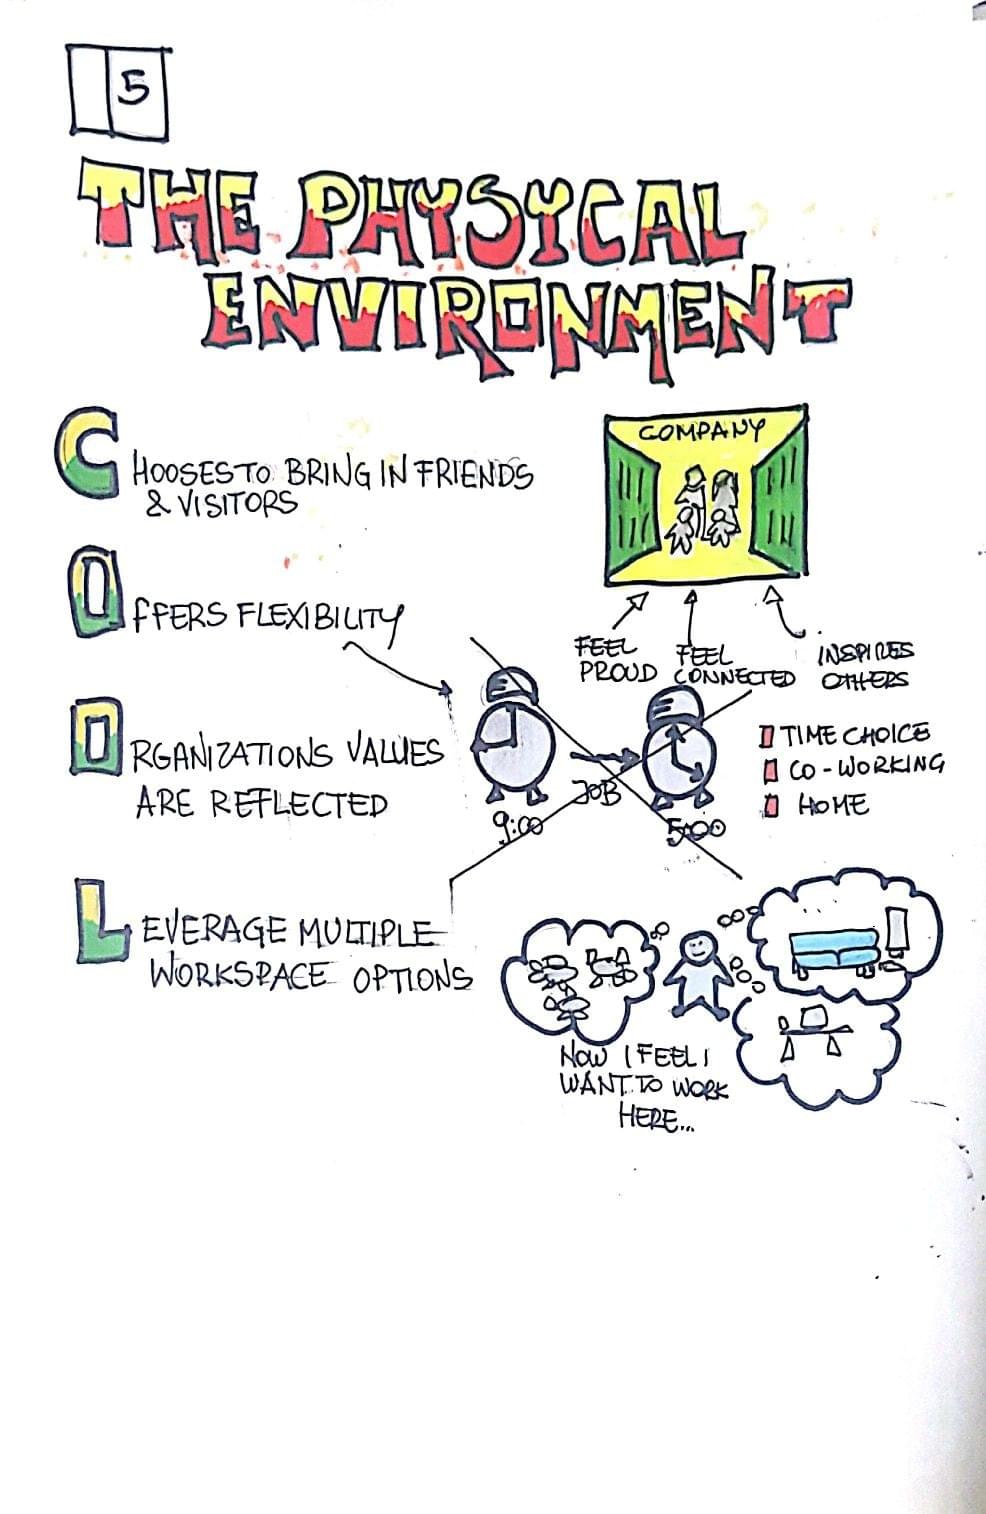 5
THE PHYSICAL
ENVIRONMENT
CHOOSES TO BRING IN FRIENDS
& VISITORS
COMPANY
FEEL
PROUD
FEEL
CONNECTED
INSPIRES
OTHERS
OFFERS FLEXIBILITY
ORGANIZATIONS VALUES
ARE REFLECTED
9:00
JOB
5:00
TIME CHOICE
CO-WORKING
HOME
LEVERAGE MULTIPLE
WORKSPACE OPTIONS
NOW I FEEL I
WANT TO WORK
HERE...